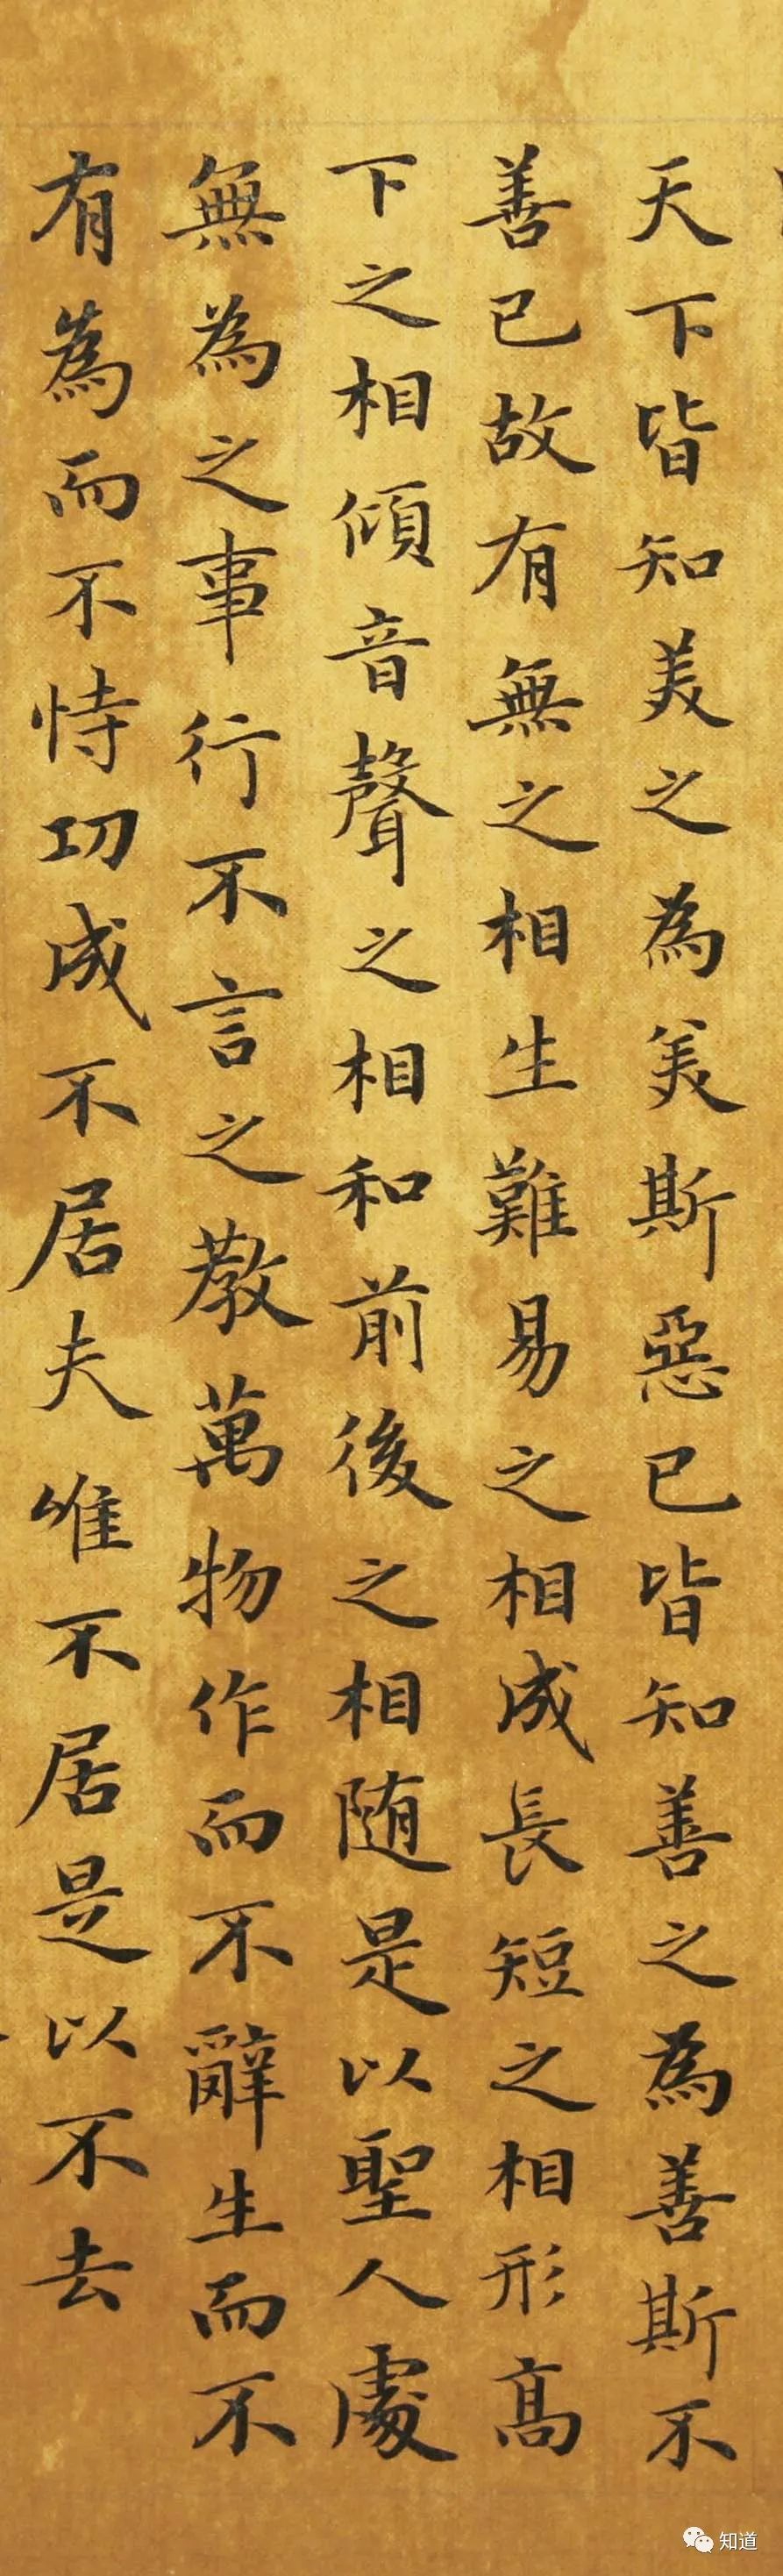 天下皆知美之為美斯惡已皆知善之為善斯不
善已故有無之相生難易之相成長短之相形高
下之相傾音聲之相和前後之相随是以聖人處
無為之事行不言之教萬物作而不辭生而不
有為而不恃功成不居夫唯不居是以不去
知道